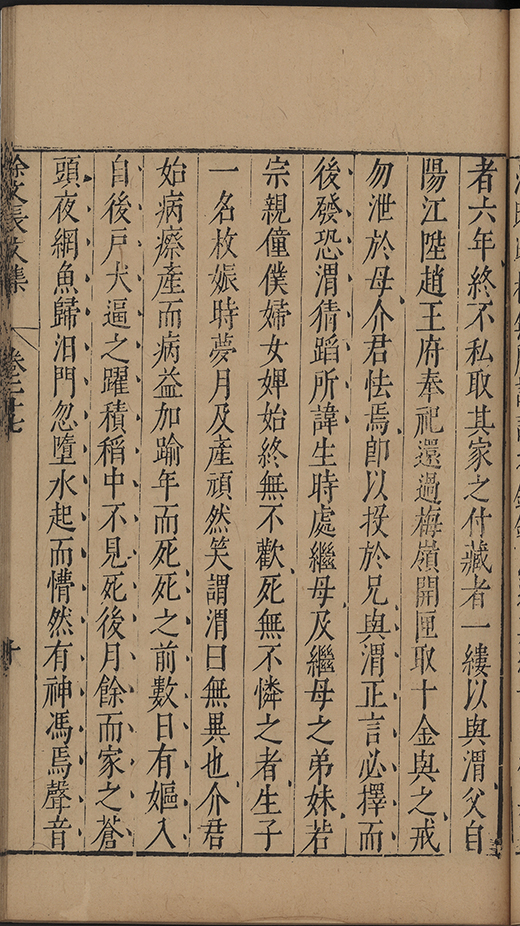 者六年終不私取其家之付藏者一縷以與渭父自
陽江陞趙王府奉祀還過梅嶺開匣取十金與之戒
勿泄於母介君怯焉卽以投於兄與渭正言必擇而
後發恐渭猜蹈所諱生時處繼母及繼母之弟妹若
宗親僮僕婦女婢始終無不歡死無不憐之者生子
一名枚娠時夢月及產頎然笑謂渭曰無異也介君
始病瘵產而病益加踰年而死死之前數日有嫗入
自後戶犬逼之躍積稻中不見死後月餘而家之蒼
頭夜網魚歸泪門忽墮水起而懵然有神馮焉聲音
徐文長文集
卷二十七
十